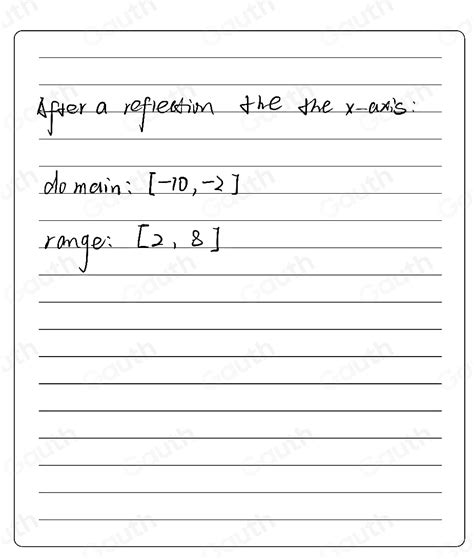 After a reflection the the x-axis:
domain: [-10, -2]
range: [2, 8]